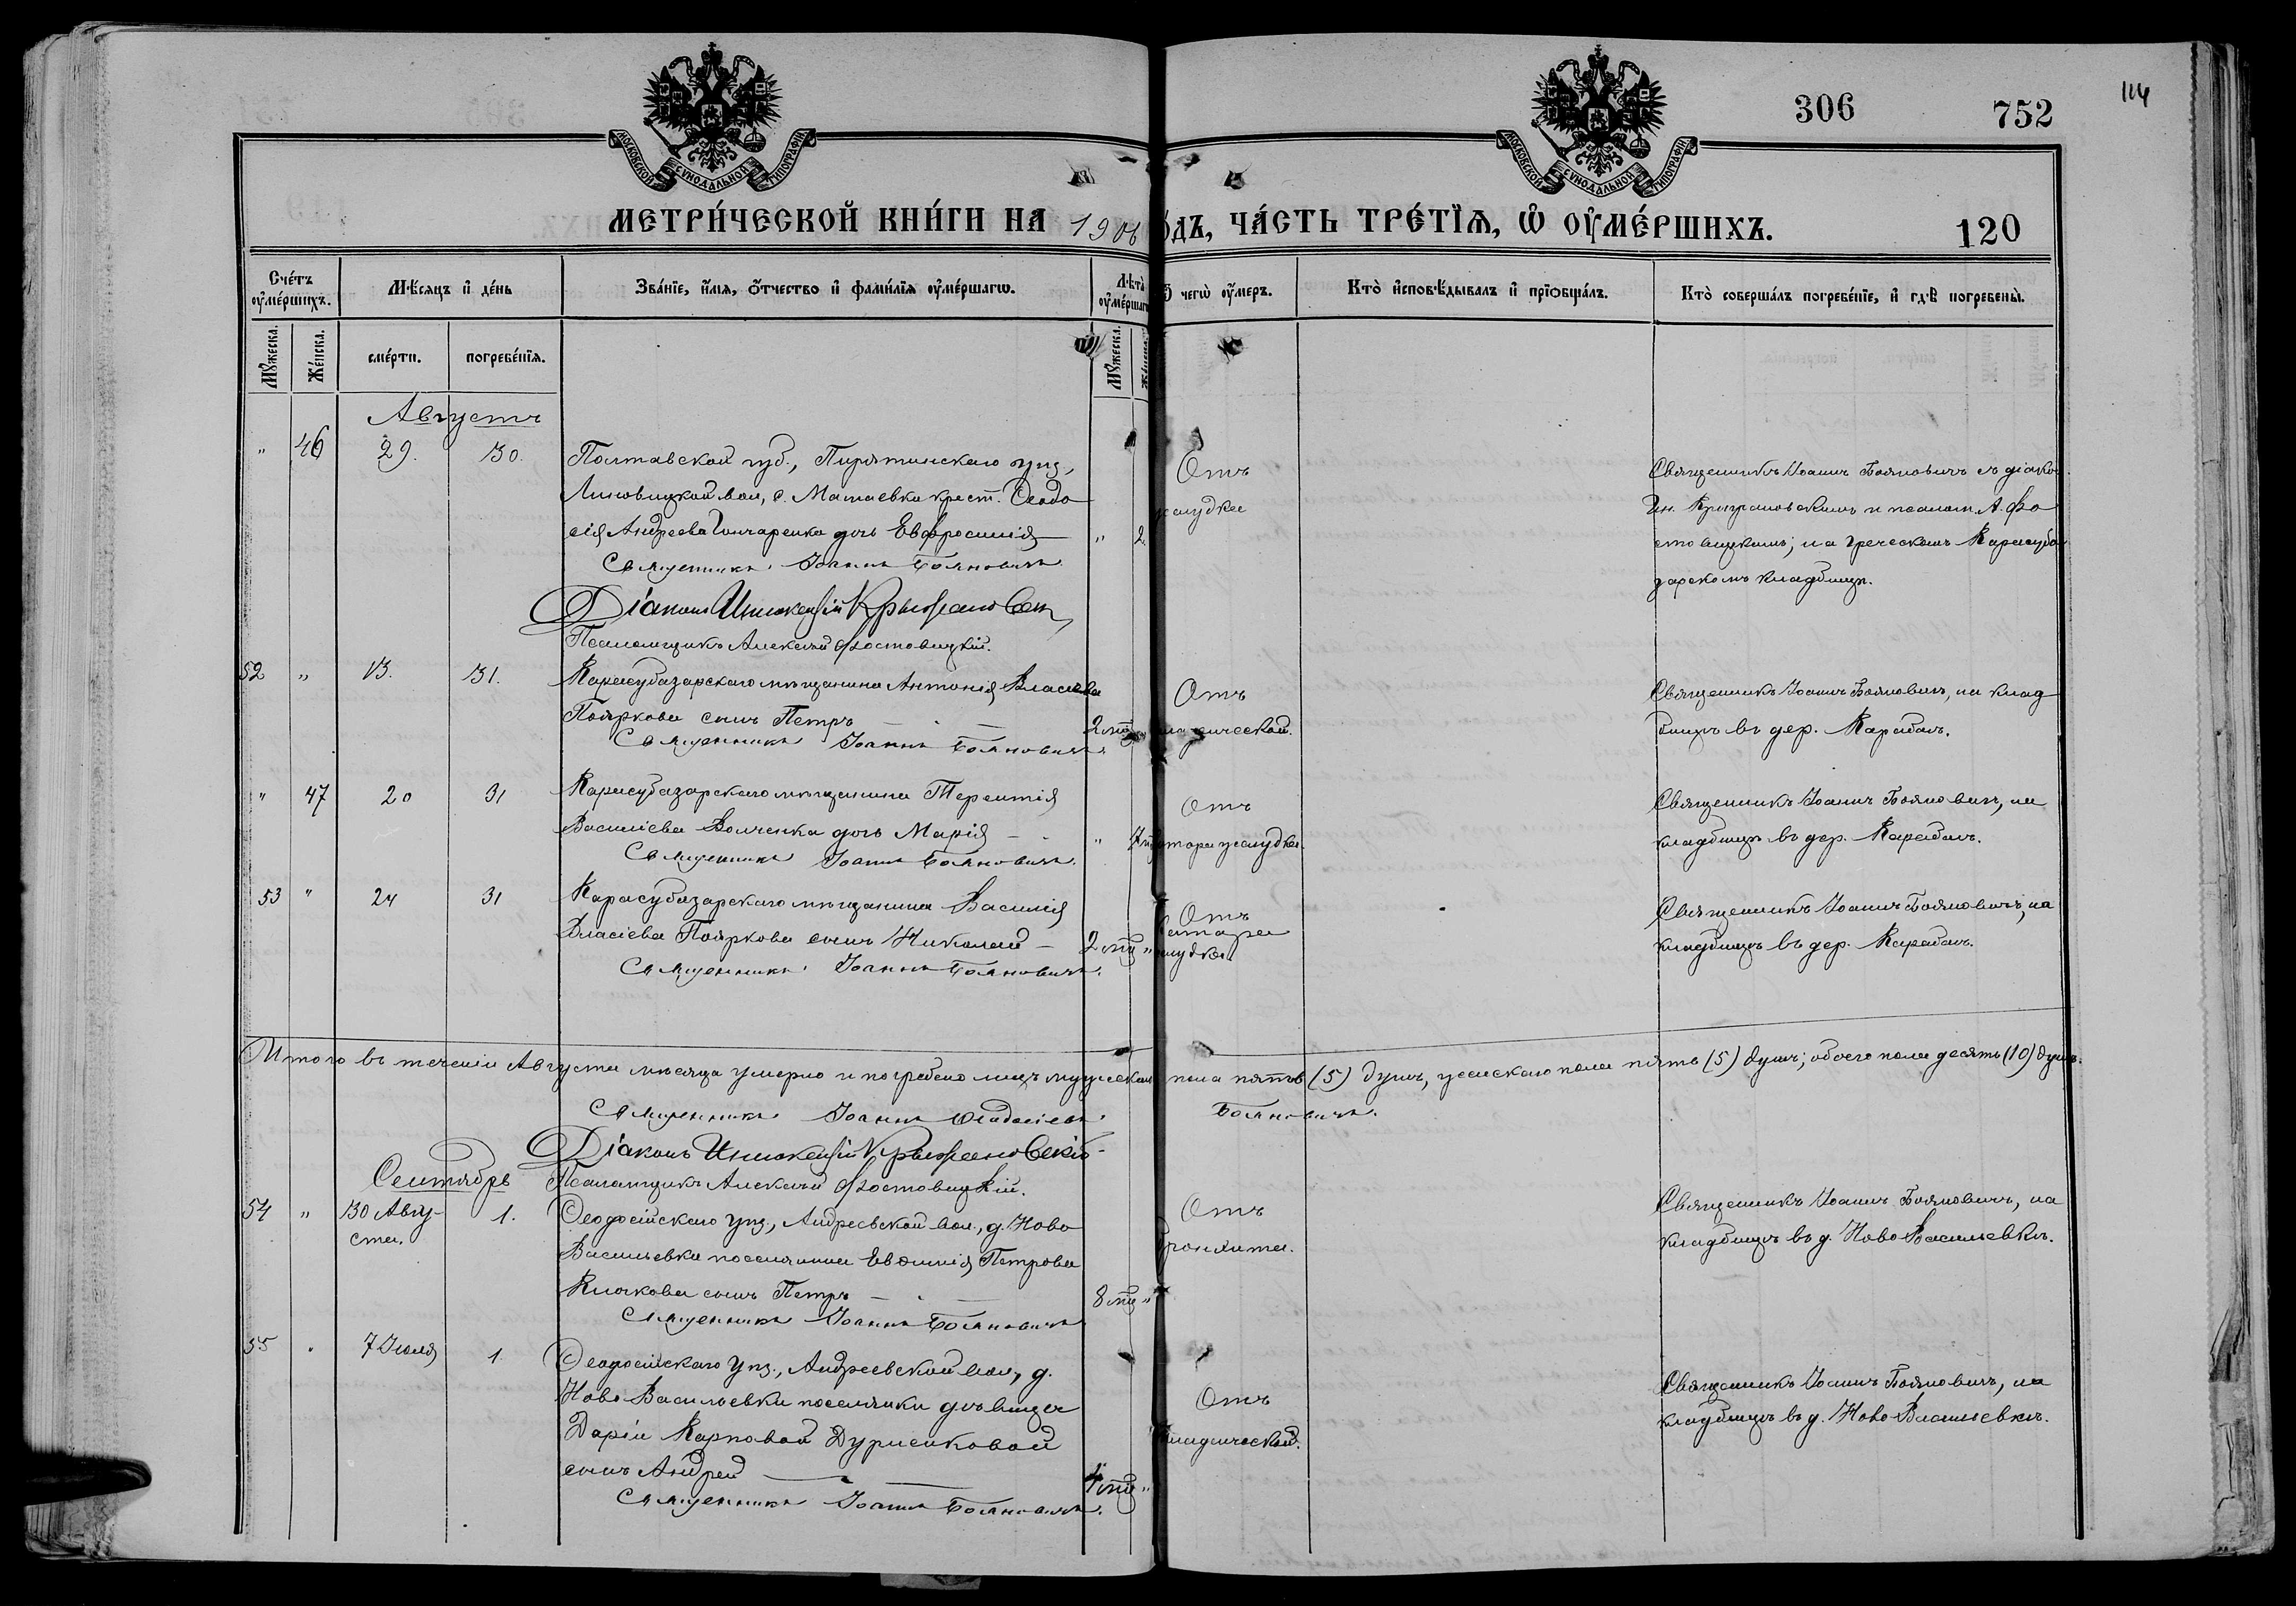 МОСКОВСКОЙ СУНОДАЛЬНОЙ ТИПОГРАФІИ
МОСКОВСКОЙ СУНОДАЛЬНОЙ ТИПОГРАФІИ
306 752 114
МЕТРИ́ЧЕСКОЙ КНИ́ГИ НА 1906 ОДЪ, ЧА́СТЬ ТРЕ́ТЇѦ, Ѡ ОУМЕ́РШИХЪ. 120
Сче́тъ оумéршихъ.
Мѣсяцъ и де́нь
Зва́нїе, и́мя, о́тчество и фами́лїя оуме́ршагѡ.
Лѣтъ оуме́ршаг
ѿ чегѡ̀ оу́меръ.
Кто̀ исповѣ́дывалъ и прїѡбща́лъ.
Кто̀ соверша́лъ погребе́нїе, и гдѣ̀ погребены̀.
Му́жеска. Же́нска. сме́рти. погребе́нїя. Му́жеска.
Августъ
" 46 29. 30.
Полтавской губ., Пирятинскаго уѣз.,
Линовицкой вол., с. Мамаевки крест. Ѳеодо
сія Андреева Гончаренка дочь Евфросинія " 2.
Священникъ Іоаннъ Бояновичъ
Діаконъ Иннокентій Крыжановск
Псаломщикъ Алексѣй Фостовицкій.
Отъ
желудка
Священникъ Іоаннъ Бояновичъ съ діако
Ин. Крыжановскимъ и псалом. А. Фо
стовицкимъ; на Греческомъ Карасуба
зарскомъ кладбищѣ.
52 " 13. 31.
Карасубазарскаго мѣщанина Антонія Власіева
Пояркова сынъ Петръ 2 мц
Священникъ Іоаннъ Бояновичъ.
Отъ
младенческой.
Священникъ Іоаннъ Бояновичъ, на клад
бищѣ въ дер. Карабаѣ.
" 47 20 31
Карасубазарскаго мѣщанина Терентія
Василіева Волченка дочь Марія " 7
Священникъ Іоаннъ Бояновичъ.
Отъ
катара желудка.
Священникъ Іоаннъ Бояновичъ, на
кладбищѣ въ дер. Карабаѣ.
53 " 24 31
Карасубазарскаго мѣщанина Василія
Власіева Пояркова сынъ Николай 2 мц "
Священникъ Іоаннъ Бояновичъ.
Отъ
катара
желудка.
Священникъ Іоаннъ Бояновичъ, на
кладбищѣ въ дер. Карабаѣ.
Итого въ теченіи Августа мѣсяца умерло и погребено лицъ мужеска пола пять (5) душъ, женскаго пола пять (5) душъ; обоего пола десять (10) душъ.
Священникъ Іоаннъ Ѳеодосіевъ Бояновичъ.
Діаконъ Иннокентій Крыжановскій
Псаломщикъ Алексѣй Фостовицкій.
Сентябрь
54 " 30 Авгу- 1.
ста.
Ѳеодосійскаго уѣз., Андреевской вол., д. Ново
Васильевки поселянина Евфимія Петрова
Клочкова сынъ Петръ 8 мц "
Священникъ Іоаннъ Бояновичъ
Отъ
бронхита.
Священникъ Іоаннъ Бояновичъ, на
кладбищѣ въ д. Ново Васильевкѣ.
55 " 7 Іюля 1
Ѳеодосійскаго уѣз., Андреевской вол., д.
Ново Васильевки поселянки дѣвицы
Даріи Карповой Дурисиковой
сынъ Андрей 4 мц "
Священникъ Іоаннъ Бояновичъ.
Отъ
младенческой.
Священникъ Іоаннъ Бояновичъ, на
кладбищѣ въ д. Ново Васильевкѣ.